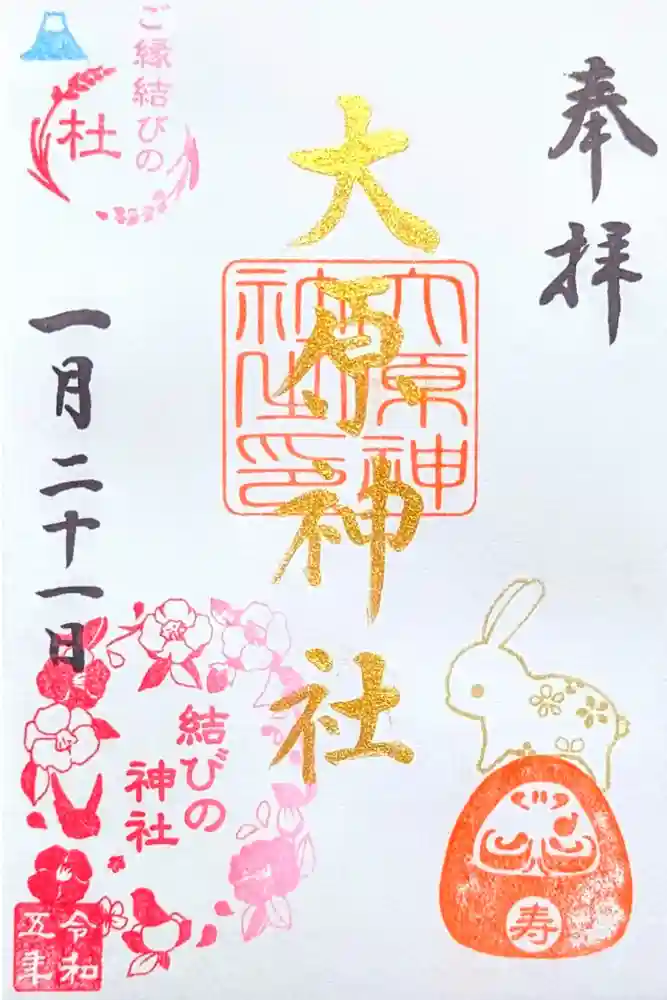 奉拝
大原神社
大原神
社之印
ご縁結びの
杜
一月二十一日
結びの
神社
令和
五年
寿